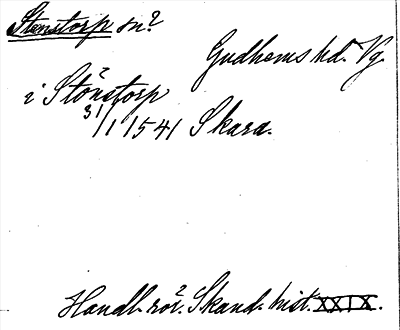 Stenstorp sn?
Gudhems hd. Vg.
i Stönstorp
31/1 1541 Skara.
Handl. rör. Skand. hist. XXIX.